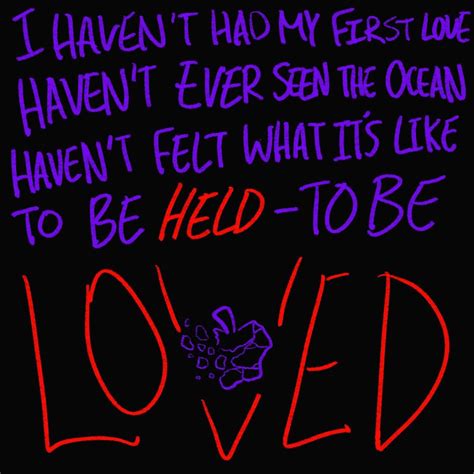 I HAVEN'T HAD MY FIRST LOVE
HAVEN'T EVER SEEN THE OCEAN
HAVEN'T FELT WHAT IT'S LIKE
TO BE HELD - TO BE
LOVED